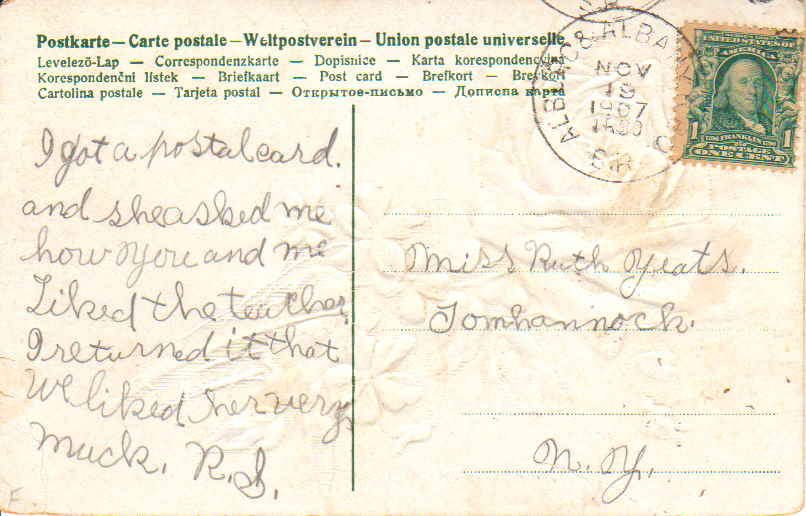 Postkarte — Carte postale — Weltpostverein — Union postale universelle
Levelező-Lap — Correspondenzkarte — Dopisnice — Karta korespondencyjna
Korespondenční lístek — Briefkaart — Post card — Brefkort — Brevkort
Cartolina postale — Tarjeta postal — Открытое-письмо — Дописна карта
NOV
1907
ALBANY
UNITED STATES OF
AMERICA
1 1
POSTAGE
ONE CENT
I got a postal card.
and she asked me
how you and me
Liked the teacher
I returned it that
we liked her very
muck. R.S.
Miss Ruth Yeats.
Tomhannock.
N. Y.